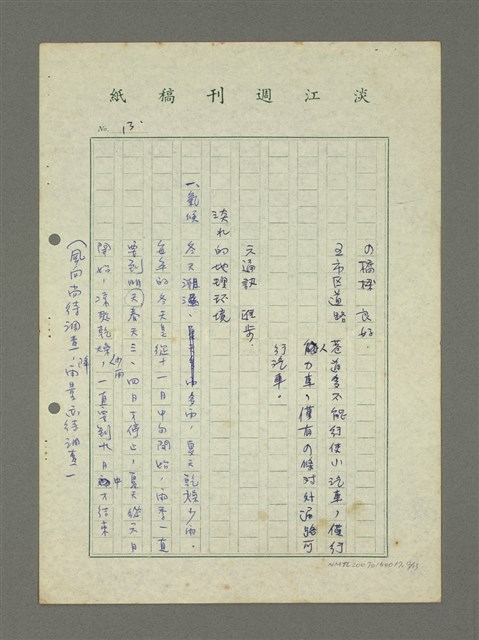 淡江週刊稿紙
No. 13.
の橋樑 良好。
5 市区道路 巷道多不能行使小汽車，僅行
人力車，僅有の條对外道路可
行汽車。
六通訊 進步。
淡水的地理环境
一、氣候 冬天潮濕、多雨，夏天乾燥少雨。
每年的冬天是從十一月中旬開始，雨季一直
要到明天春天三、四月才停止，夏天從六月
開始，涼爽乾燥，少雨一直要到九月中才結束
（風向尚待調查，降雨量亦待調查）